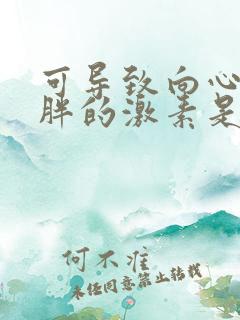 可导致向心
胖的激素是
何不淮
未经同意禁止转载